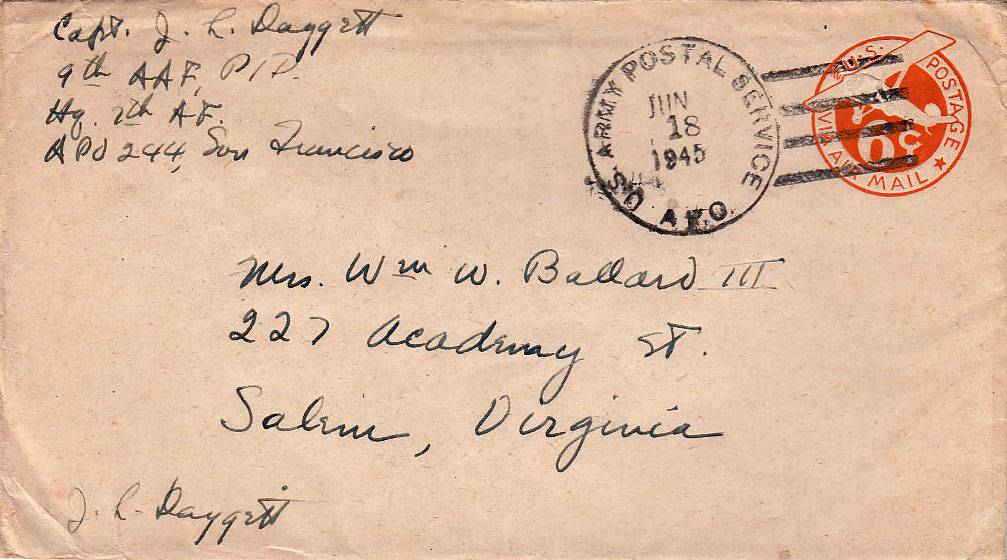 Capt. J. L. Daggett
9th AAF, P/P.
Hq. 7th AF.
APO 244, San Francisco
U.S. ARMY POSTAL SERVICE
JUN
18
1945
A.P.O.
U.S. POSTAGE
6¢
VIA AIR MAIL
Mrs. Wm W. Ballard III
227 Academy St.
Salem, Virginia
J. L. Daggett